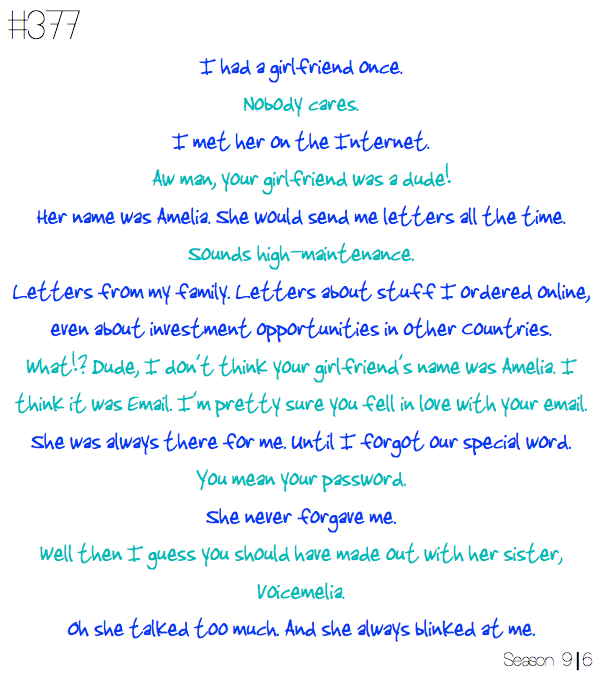 #377
I had a girlfriend once.
Nobody cares.
I met her on the Internet.
Aw man, your girlfriend was a dude!
Her name was Amelia. She would send me letters all the time.
Sounds high-maintenance.
Letters from my family. Letters about stuff I ordered online,
even about investment opportunities in other countries.
What!? Dude, I don't think your girlfriend's name was Amelia. I
think it was Email. I'm pretty sure you fell in love with your email.
She was always there for me. Until I forgot our special word.
You mean your password.
She never forgave me.
Well then I guess you should have made out with her sister,
Voicemelia.
Oh she talked too much. And she always blinked at me.
Season 9|6